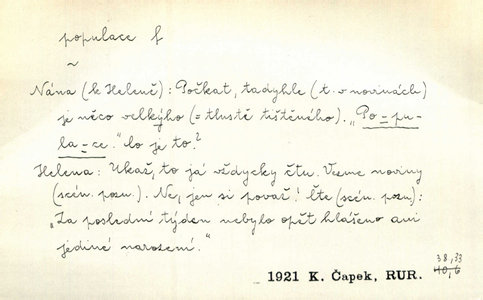 populace f
~
Nána (k Heleně): Počkat, tadyhle (t. v novinách)
je něco velkýho (= tlustě tištěného). „Po-pu-
la-ce." Co je to?
Helena: Ukaž, to já vždycky čtu. Vezme noviny
(scén. pozn.). Ne, jen si považ! Čte (scén. pozn):
„Za poslední týden nebylo opět hlášeno ani
jediné narození."
38,33
1921 K. Čapek, RUR. 40,6